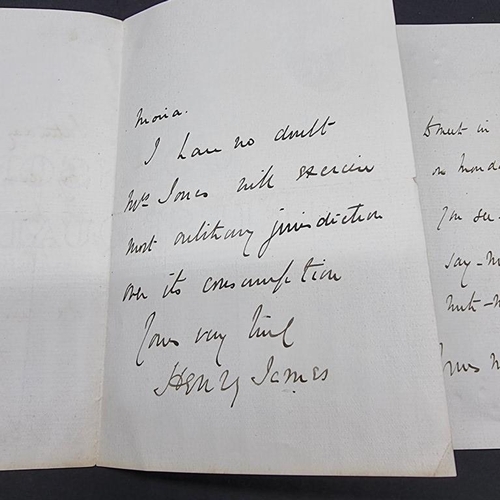 monia.
I have no doubt
Mrs Jones will exercise
most arbitrary jurisdiction
over its consumption
Yours very truly
Henry James
to meet in
on Monda
you see-
say-
Yours